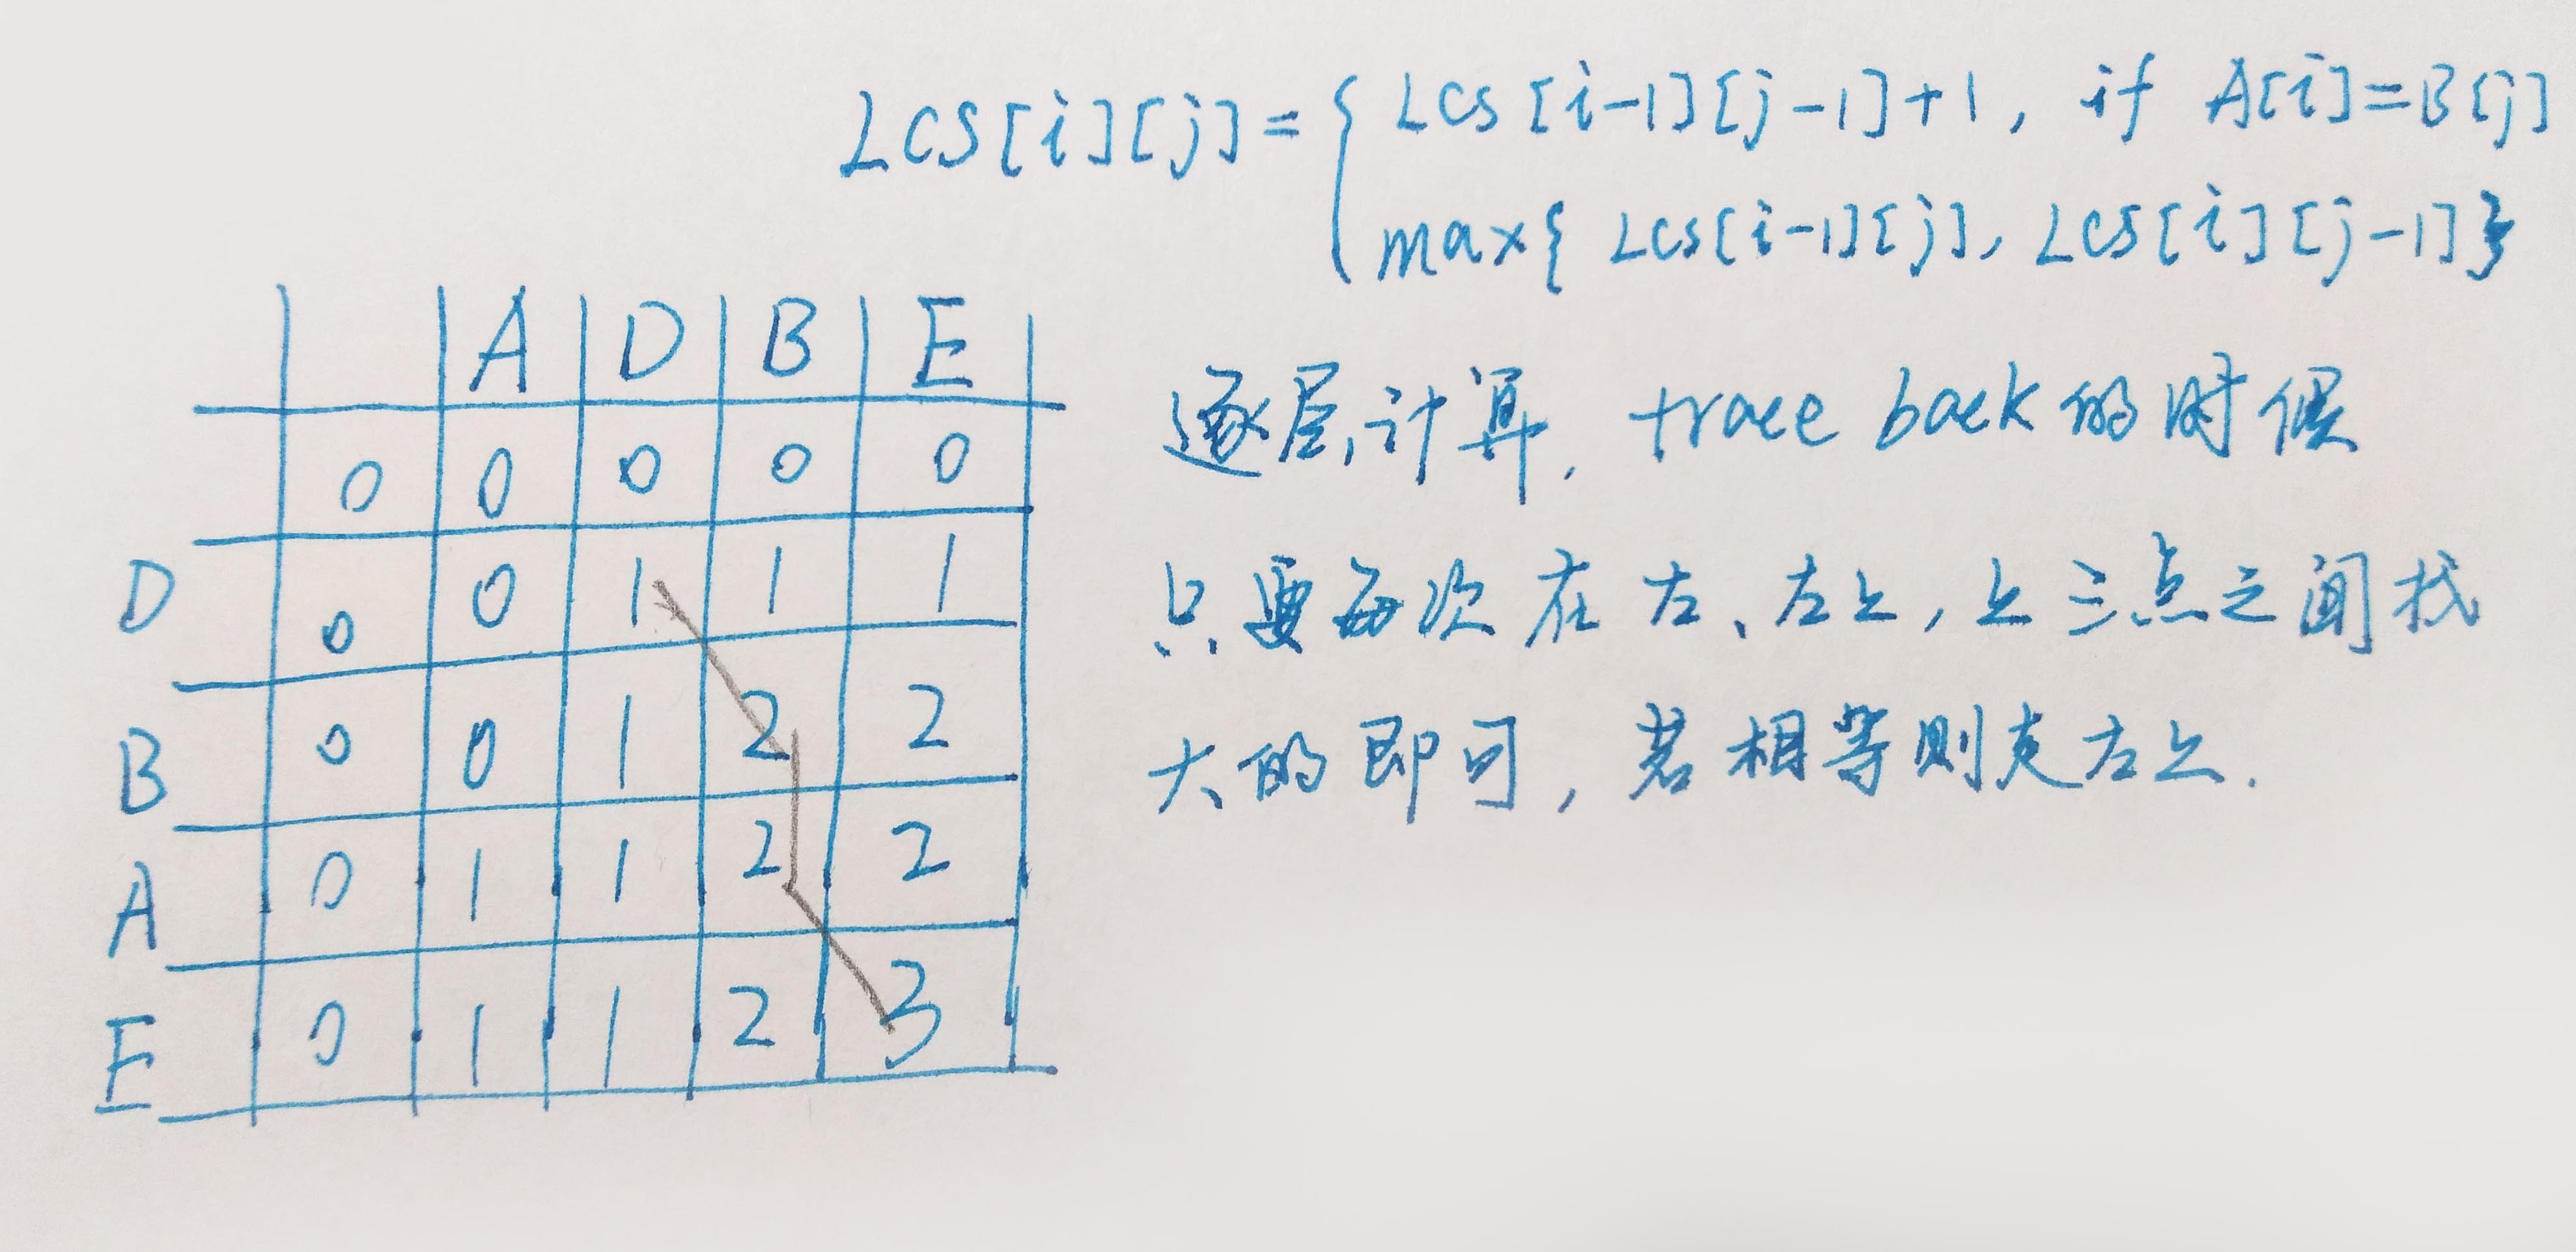 LCS[i][j]={ LCS[i-1][j-1]+1, if A[i]=B[j]
max{ LCS[i-1][j], LCS[i][j-1]}
A D B E
0 0 0 0 0
D 0 0 1 1 1
B 0 0 1 2 2
A 0 1 1 2 2
E 0 1 1 2 3
逐层计算, trace back的时候
只要每次在左、左上,上三点之间找
大的即可,若相等则走左上.